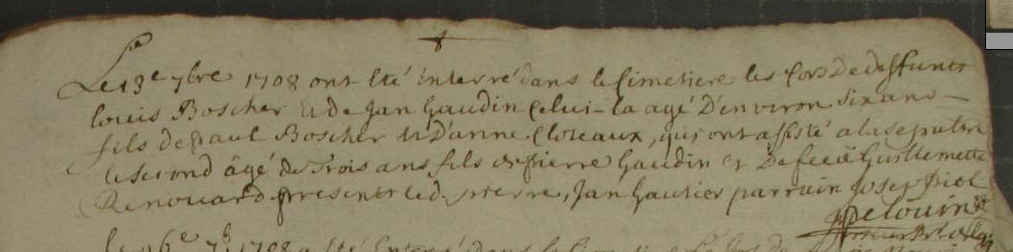 Le 13e 7bre 1708 ont été interré dans le cimetiere les cors de deffunts
louis Boscher et de Jan Gaudin celui-la agé D'environ six ans
fils de paul Boscher et D'anne Cloteaux, qui ont assisté a la sepultre
le second âgé de Trois ans fils de pierre Gaudin et De feüe Guillemette
Renouard presents led. pierre, Jan Gautier parrain
Delouin
le 16e 7b 1708 a été Enterré dans le